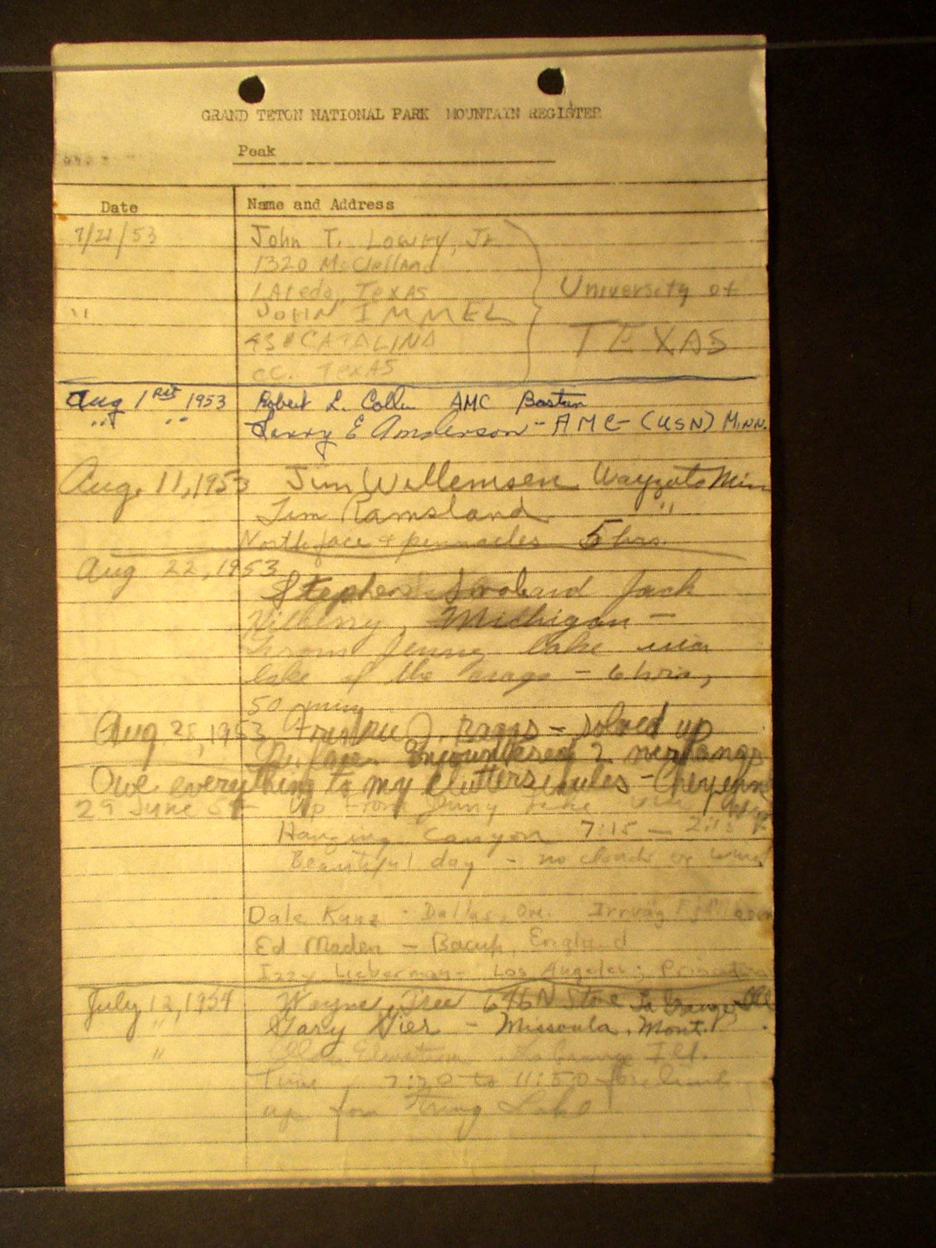 GRAND TETON NATIONAL PARK MOUNTAIN REGISTER
Peak
Date Name and Address
7/21/53 John T. Lowry, Jr.
1320 McClelland
Laredo, Texas
University of
" JOHN IMMEL
TEXAS
CATALINA
CC. TEXAS
Aug 1RST 1953 Robert L. Collin AMC Boston
" " Larry E Anderson - AMC - (USN) MINN.
Aug. 11, 1953 Jim Willemsen Wayzata Minn
Jim Ramsland "
North face & pinnacles 5 hrs.
Aug 22, 1953
Stephen Jack
Michigan -
From Jenny Lake via
lake of the crags - 6 hrs,
50 min
Aug 28, 1953 - solved up
N. face. Encountered 2
Owe everything to my
29 June 54 Up from Jenny Lake via
Hanging Canyon 7:15 - 2:15
Beautiful day - no clouds or wind
Dale Kunz - Dallas, Ore.
Ed Maden - Bacup, England
Izzy Lieberman - Los Angeles; Princeton
July 12, 1954 Wayne 646 N Stone La Grange Ill
" Gary Gier - Missoula, Mont.
" La Grange Ill.
Time 7:20 to 11:50 for climb
up from String Lake